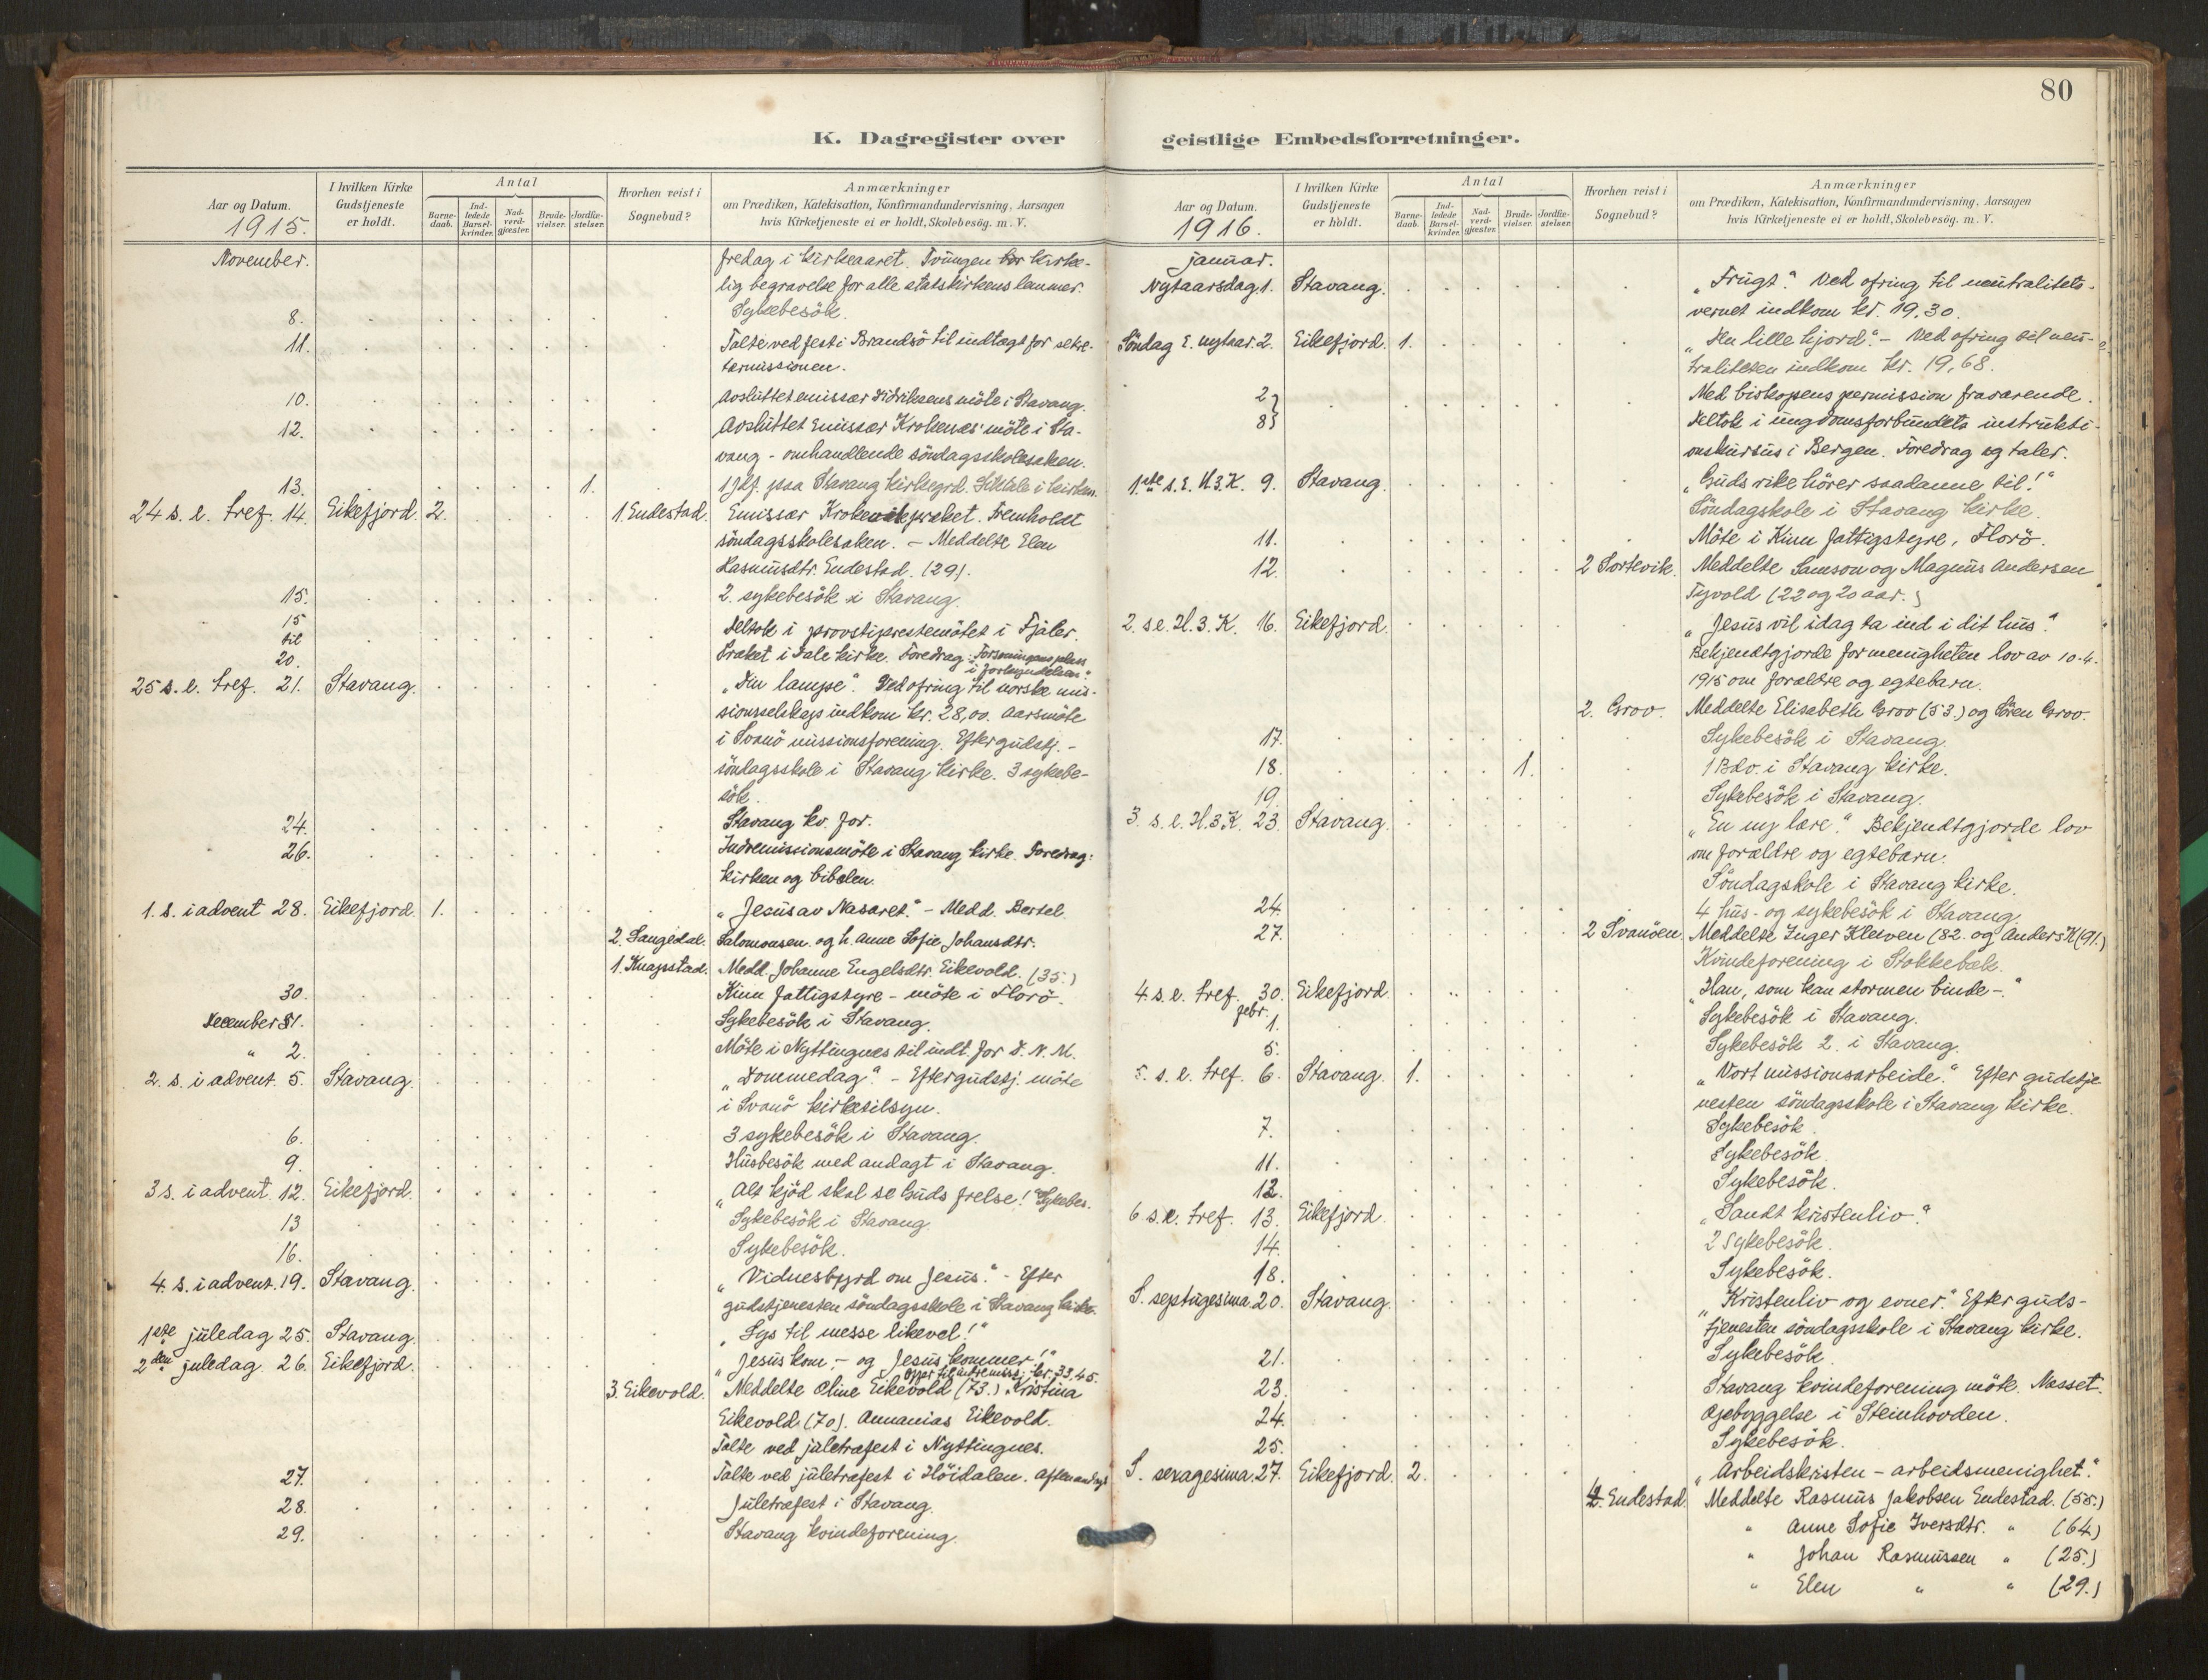 80
K. Dagregister over
Aar og Datum.
1915.
I hvilken Kirke Gudstjeneste er holdt.
Antal
Barne-daab.
Ind-ledede Barsel-kvinder.
Nad-verd-gjæster.
Brude-vielser.
Jordfæ-stelser.
Hvorhen reist i Sognebud?
Anmærkninger
om Prædiken, Katekisation, Konfirmandundervisning, Aarsagen
hvis Kirketjeneste ei er holdt, Skolebesög. m. V.
November. fredag i kirkeaaret. Tvungen kirke-
lig begravelse for alle statskirkens lemmer.
8. Sykebesök.
11. Talte ved fest i Brandsö til indtægt for sekre-
tærmissionen.
10. Avsluttet emissær Didriksens möte i Stavang.
12. Avsluttet Emissær Krokenæs' möte i Sta-
vang - omhandlende söndagsskolesaken.
13. 1. 1 Jkf. paa Stavang kirkegrd. Liktale i kirken.
24 s. e. tref. 14. Eikefjord. 2. 1. Endestad. Emissær præket. Fremholdt
söndagsskolesaken. - Meddelte Elen
Rasmusdtr. Endestad. (29).
15. 2. sykebesök i Stavang.
15 Deltok i provstiprestemötet i Fjaler.
til
20. Præket i Dale kirke. Foredrag: Forsoningens plass
i forkyndelsen."
25 s. e. tref. 21. Stavang. "Din lampe". Ved ofring til norske mis-
sionsselskap indkom kr. 28,00. Aarsmöte
i Svanö missionsforening. Efter gudstj. -
söndagsskole i Stavang kirke. 3 sykebe-
sök.
24. Stavang kv. for.
26. Indremissionsmöte i Stavang kirke. Foredrag:
kirken og bibelen.
1. s. i advent 28. Eikefjord. 1. "Jesus av Nasaret." - Medd. Bertel
2. Langedal. Salomonsen og h. Anne Sofie Johansdtr.
1. Knapstad. Medd. Johanne Engelsdtr. Eikevold. (35.)
30. Kinn fattigstyre - möte i Florö.
December 1. Sykebesök i Stavang.
" 2. Möte i Nyttingnes til indt. for D. N. M.
2. s. i advent. 5. Stavang. "Dommedag." - Efter gudstj. möte
i Svanö kirketilsyn.
6. 3 sykebesök i Stavang.
9. Husbesök med andagt i Stavang.
3 s. i advent. 12. Eikefjord. "Alt kjöd skal se Guds frelse!" Sykebes.
13 Sykebesök i Stavang.
16. Sykebesök.
4. s. i advent. 19. Stavang. "Vidnesbyrd om Jesus." - Efter
gudstjenesten söndagsskole i Stavang kirke.
1ste juledag 25. Stavang. "Lys til messe likevel!"
2den juledag. 26. Eikefjord. "Jesus kom, - og Jesus kommer!"
Offer til indremiss. kr. 33.45.
3. Eikevold. Meddelte Oline Eikevold (73.) Kristina
Eikevold (70). Annanias Eikevold.
Talte ved juletræfest i Nyttingnes.
27. Talte ved juletræfest i Höidalen. Aftenandagt
28. Juletræfest i Stavang.
29. Stavang kvindeforening.
geistlige Embedsforretninger.
Aar og Datum.
1916.
I hvilken Kirke Gudstjeneste er holdt.
Antal
Barne-daab.
Ind-ledede Barsel-kvinder.
Nad-verd-gjæster.
Brude-vielser.
Jordfæ-stelser.
Hvorhen reist i Sognebud?
Anmærkninger
om Prædiken, Katekisation, Konfirmandundervisning, Aarsagen
hvis Kirketjeneste ei er holdt, Skolebesög. m. V.
januar.
Nytaarsdag. 1. Stavang. "Frugt." Ved ofring til neutralitets-
vernet indkom kr. 19.30.
Söndag e. nytaar. 2. Eikefjord. 1. "Den lille hjord." - Ved ofring til neu-
traliteten indkom kr. 19,68.
2} Med biskopens permission fraværende.
8} Deltok i ungdomsforbundets instrukti-
onskursus i Bergen. Foredrag og taler.
1.ste s. e. H3K. 9. Stavang. "Guds rike hörer saadanne til!"
Söndagskole i Stavang kirke.
11. Möte i Kinn fattigstyre, Florö.
12. 2 Sortevik. Meddelte Samson og Magnus Andersen
Tyvold (22 og 20 aar.)
2. s. e. H. 3. K. 16. Eikefjord. "Jesus vil idag ta ind i dit hus."
Bekjendtgjorde for menigheten lov av 10-4.
1915 om forældre og egtebarn.
2. Grov. Meddelte Elisabeth Grov (53.) og Sören Grov.
17. Sykebesök i Stavang.
18. 1. 1 Bdv. i Stavang kirke.
19. Sykebesök i Stavang.
3. s. e. H. 3 K. 23. Stavang. "En ny lære." Bekjendtgjorde lov
om forældre og egtebarn.
Söndagskole i Stavang kirke.
24. 4 hus- og sykebesök i Stavang.
27. 2 Svanöen. Meddelte Inger Kleiven (82. og Anders K (91.)
Kvindeforening i Stokkebæk.
4. s. e. tref. 30. Eikefjord. "Han, som kan stormen binde -."
febr. 1. Sykebesök i Stavang.
5. Sykebesök 2. i Stavang.
5. s. e. tref. 6. Stavang. 1. "Vort missionsarbeide." Efter gudstje
nesten söndagsskole i Stavang kirke.
7. Sykebesök.
11. Sykebesök.
12. Sykebesök.
6 s. e. tref. 13. Eikefjord. "Sandt kristenliv."
14. 2 Sykebesök.
18. Sykebesök.
S. septugesima. 20. Stavang. "Kristenliv og evner." Efter guds-
tjenesten söndagsskole i Stavang kirke.
21. Sykebesök.
23. Stavang kvindeforening möte. Masset.
24. Opbyggelse i Steinhovden.
25. Sykebesök.
S. sexagesima. 27. Eikefjord. 2. "Arbeidskristen - arbeidsmenighet."
4. Endestad. Meddelte Rasmus Jakobsen Endestad. (55.)
" Anne Sofie Iversdtr. " (64)
" Johan Rasmussen " (25.)
" Elen " " (29.)